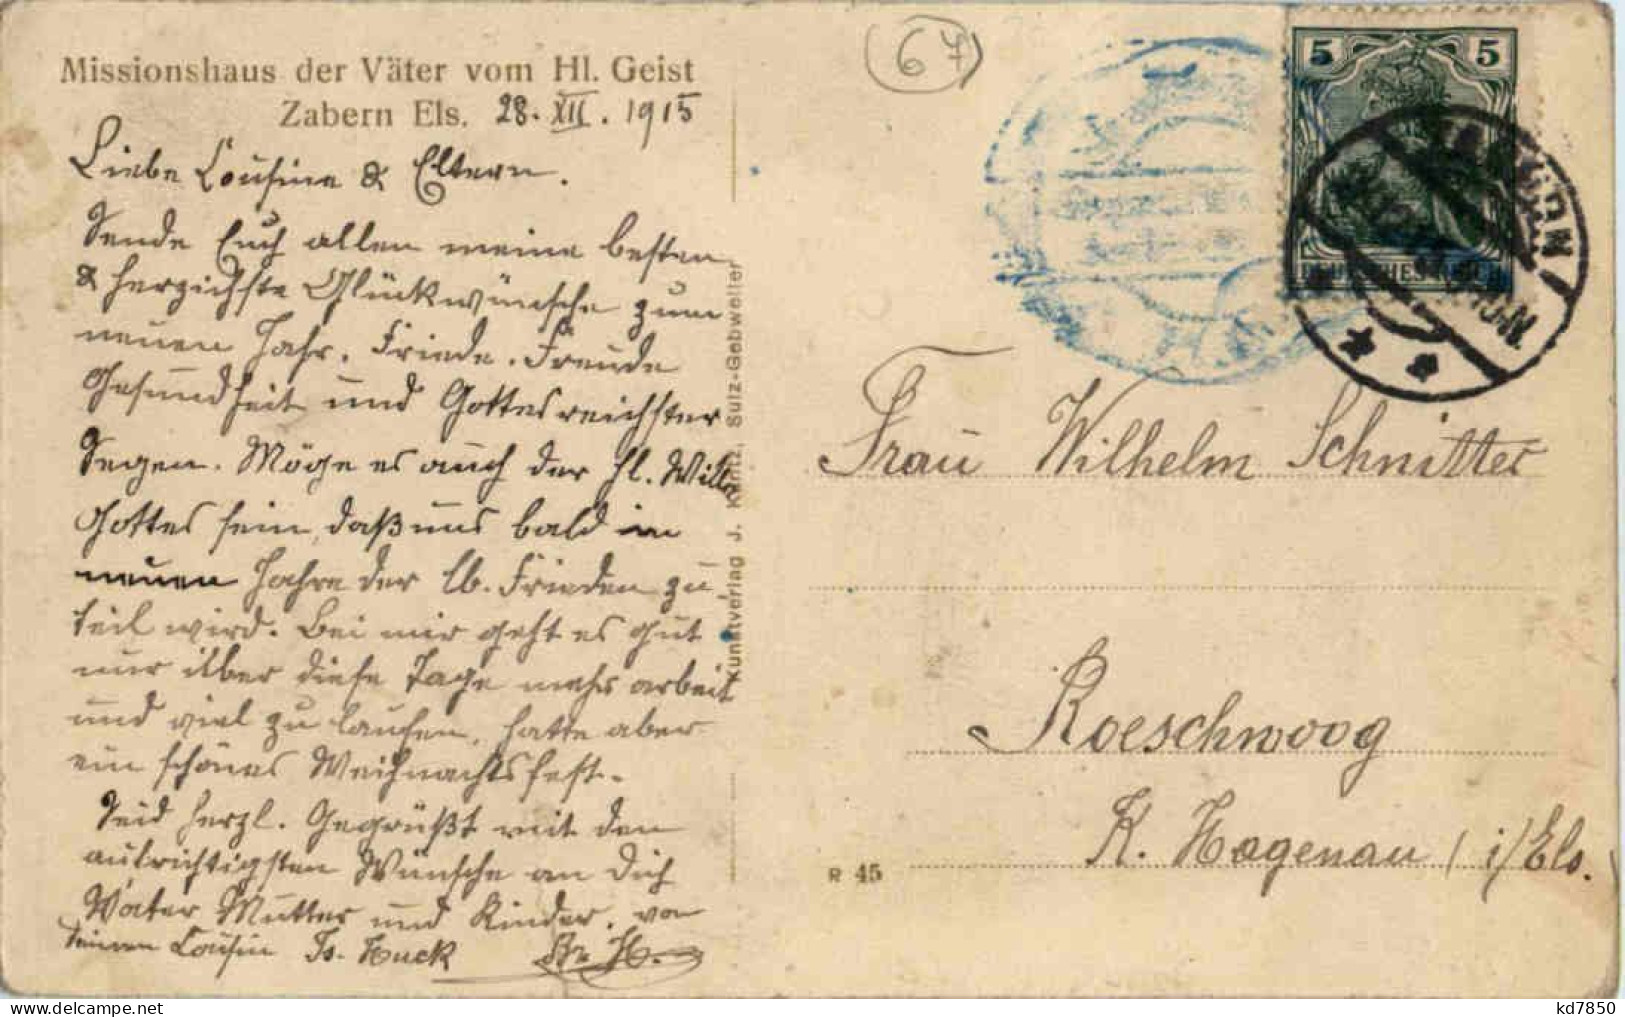 Missionshaus der Väter vom Hl. Geist
Zabern Els. 28. XII. 1915
Liebe Cousine & Eltern.
Sende Euch allen meine besten
& herzichste Glückwünsche zum
neuen Jahr. Friede. Freude
Gesundheit und Gottes reichster
Segen. Möge es auch der hl. Wille
Gottes sein, daß uns bald im
neuen Jahre der lb. Frieden zu
teil wird. Bei mir geht es gut
nur über diese Tage mehr arbeit
und viel zu laufen, hatte aber
ein schönes Weihnachtsfest.
Seid herzl. Gegrüßt mit den
aufrichtigsten Wünsche an Dich
Vater Mutter und Kinder. von
Deinen Cousin Js. Huck Br. H.
Kunstverlag J. Kuntz, Sulz-Gebweiler
67
5 5
DEUTSCHES REICH
Frau Wilhelm Schnitter
Roeschwoog
K. Hagenau (i/Els.
R 45
kd7850